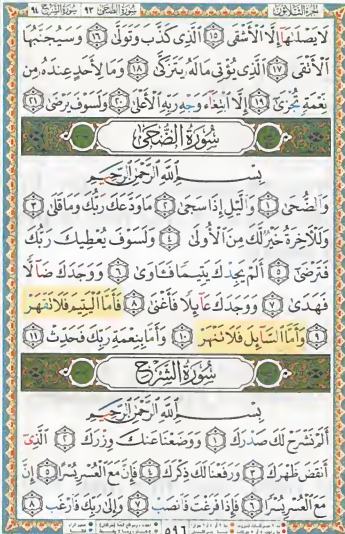 الجزء الثلاثون سورة الضحى ٩٣ سورة الشرح ٩٤
لَا يَصْلَىٰهَآ إِلَّا ٱلْأَشْقَى ١٥ ٱلَّذِى كَذَّبَ وَتَوَلَّىٰ ١٦ وَسَيُجَنَّبُهَا
ٱلْأَتْقَى ١٧ ٱلَّذِى يُؤْتِى مَالَهُۥ يَتَزَكَّىٰ ١٨ وَمَا لِأَحَدٍ عِندَهُۥ مِن
نِّعْمَةٍ تُجْزَىٰٓ ١٩ إِلَّا ٱبْتِغَآءَ وَجْهِ رَبِّهِ ٱلْأَعْلَىٰ ٢٠ وَلَسَوْفَ يَرْضَىٰ ٢١
سُورَةُ الضُّحَى
بِسْمِ ٱللَّهِ ٱلرَّحْمَٰنِ ٱلرَّحِيمِ
وَٱلضُّحَىٰ ١ وَٱلَّيْلِ إِذَا سَجَىٰ ٢ مَا وَدَّعَكَ رَبُّكَ وَمَا قَلَىٰ ٣
وَلَلْءَاخِرَةُ خَيْرٌ لَّكَ مِنَ ٱلْأُولَىٰ ٤ وَلَسَوْفَ يُعْطِيكَ رَبُّكَ
فَتَرْضَىٰٓ ٥ أَلَمْ يَجِدْكَ يَتِيمًا فَـَٔاوَىٰ ٦ وَوَجَدَكَ ضَآلًّا
فَهَدَىٰ ٧ وَوَجَدَكَ عَآئِلًا فَأَغْنَىٰ ٨ فَأَمَّا ٱلْيَتِيمَ فَلَا تَقْهَرْ
٩ وَأَمَّا ٱلسَّآئِلَ فَلَا تَنْهَرْ ١٠ وَأَمَّا بِنِعْمَةِ رَبِّكَ فَحَدِّثْ ١١
سُورَةُ الشَّرْحِ
بِسْمِ ٱللَّهِ ٱلرَّحْمَٰنِ ٱلرَّحِيمِ
أَلَمْ نَشْرَحْ لَكَ صَدْرَكَ ١ وَوَضَعْنَا عَنكَ وِزْرَكَ ٢ ٱلَّذِىٓ
أَنقَضَ ظَهْرَكَ ٣ وَرَفَعْنَا لَكَ ذِكْرَكَ ٤ فَإِنَّ مَعَ ٱلْعُسْرِ يُسْرًا ٥ إِنَّ
مَعَ ٱلْعُسْرِ يُسْرًا ٦ فَإِذَا فَرَغْتَ فَٱنصَبْ ٧ وَإِلَىٰ رَبِّكَ فَٱرْغَب ٨
٥٩٦